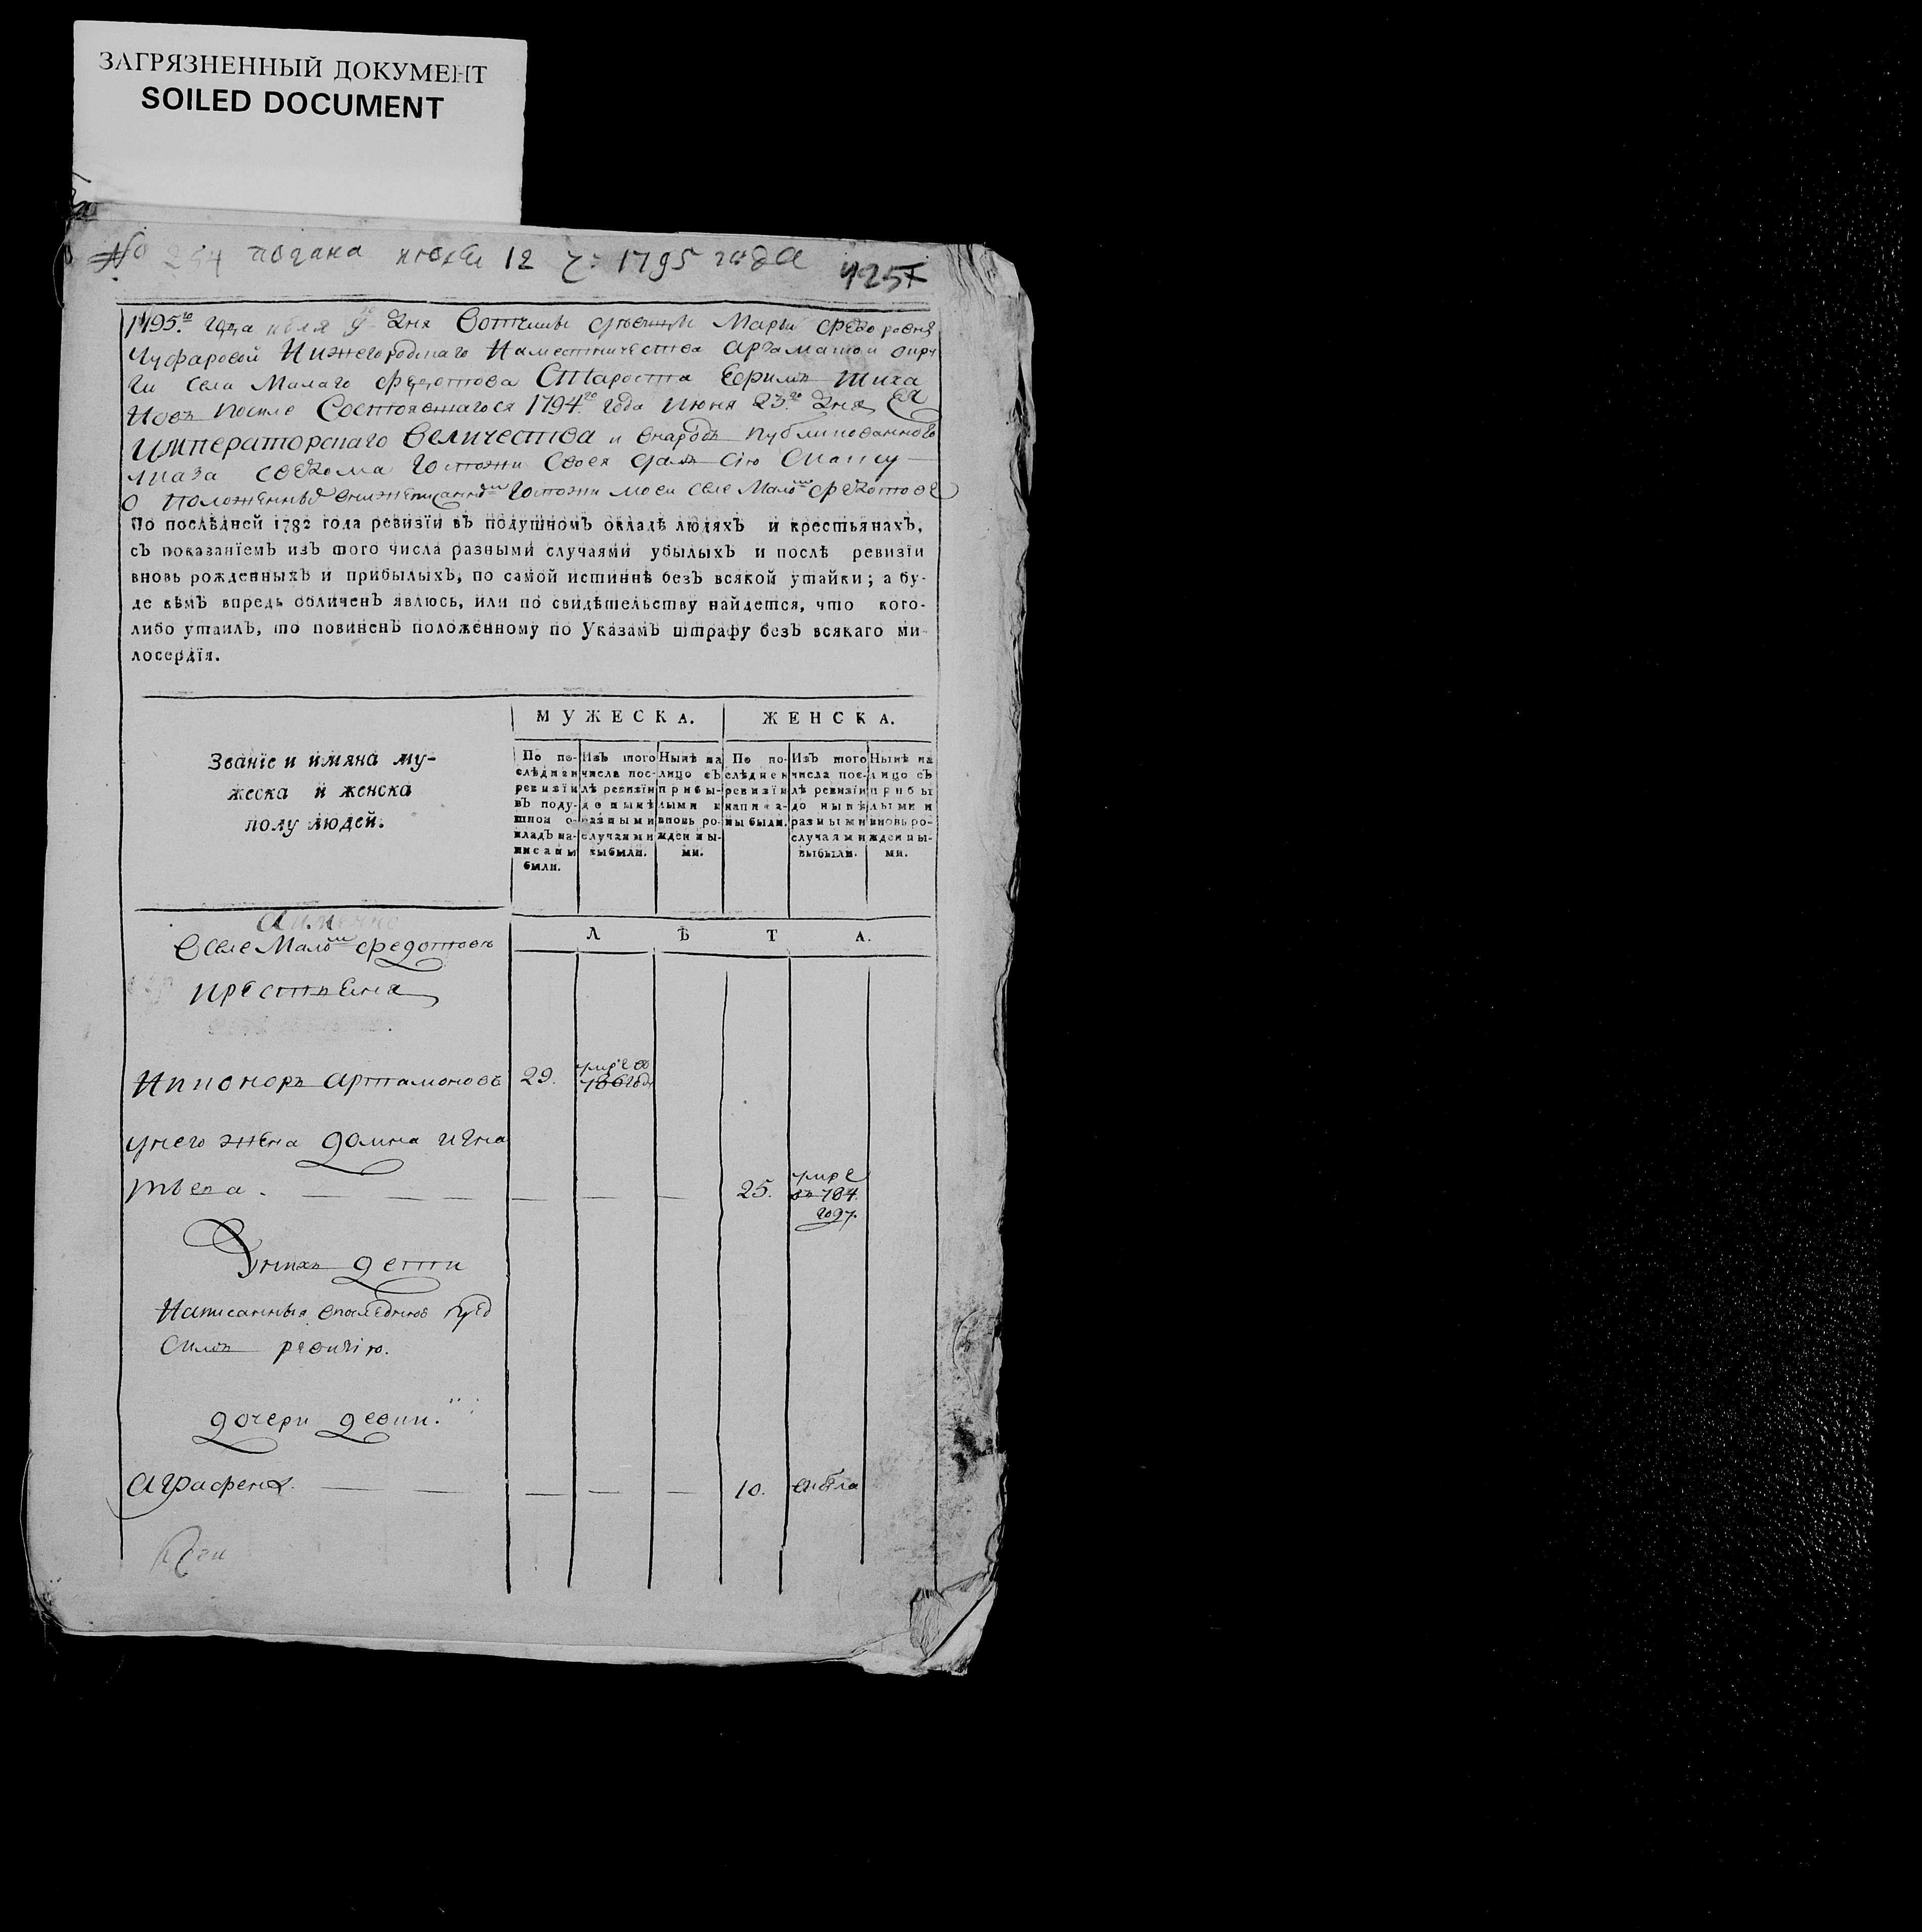 ЗАГРЯЗНЕННЫЙ ДОКУМЕНТ
SOILED DOCUMENT
№ 254 подана июля 12 ч: 1795 года
425
1795.го года июля 9 дня вотчины Марьи Федоровны
Чуфаровой Нижегородскаго Наместничества Арзамаской окру
ги села Малаго Федотова Староста Ефимъ Тиха
новъ после Состоявшагося 1794.го года июня 23.го дня Ея
Императорскаго Величества и внародъ публикованного
Указа сведома Госпожи Своея далъ сію Скаску
о положенныхъ внижеписанномъ Госпожи моей селе Маломъ Федотове
По послѣдней 1782 года ревизїи въ подушномъ окладѣ людяхъ и крестьянахъ,
съ показанїемъ изъ того числа разными случаями убылыхъ и послѣ ревизїи
вновь рожденныхъ и прибылыхъ, по самой истиннѣ безъ всякой утайки; а бу-
де кѣмъ впредь обличенъ явлюсь, или по свидѣтельству найдется, что кого-
либо утаилъ, то повиненъ положенному по Указамъ штрафу безъ всякаго ми-
лосердїя.
МУЖЕСКА. ЖЕНСКА.
Званїе и имяна му-
жеска и женска
полу людей.
По по-слѣдней ревизїи въ поду-шной о-кладъ на-писаны были.
Изъ того числа пос-лѣ ревизїи до нынѣ разными случаями выбыли.
Нынѣ на лицо съ прибы-лыми и вновь ро-жденны-ми.
По по-слѣдней ревизїи написа-ны были.
Изъ того числа пос-лѣ ревизїи до нынѣ разными случаями выбыли.
Нынѣ на лицо съ прибы лыми и вновь ро-жденны-ми.
А имянно
ЛѢТА.
В селе Маломъ Федотовъ
крестьяна
Никоноръ Артамоновъ 29. умре въ 786 годѣ
унего жена Домна Игна
тьева. 25. умре въ 784. годѣ.
Уних детти
Написанныя впоследнюю пред
Симъ ревизію.
дочери девки.
Аграфена. 10.